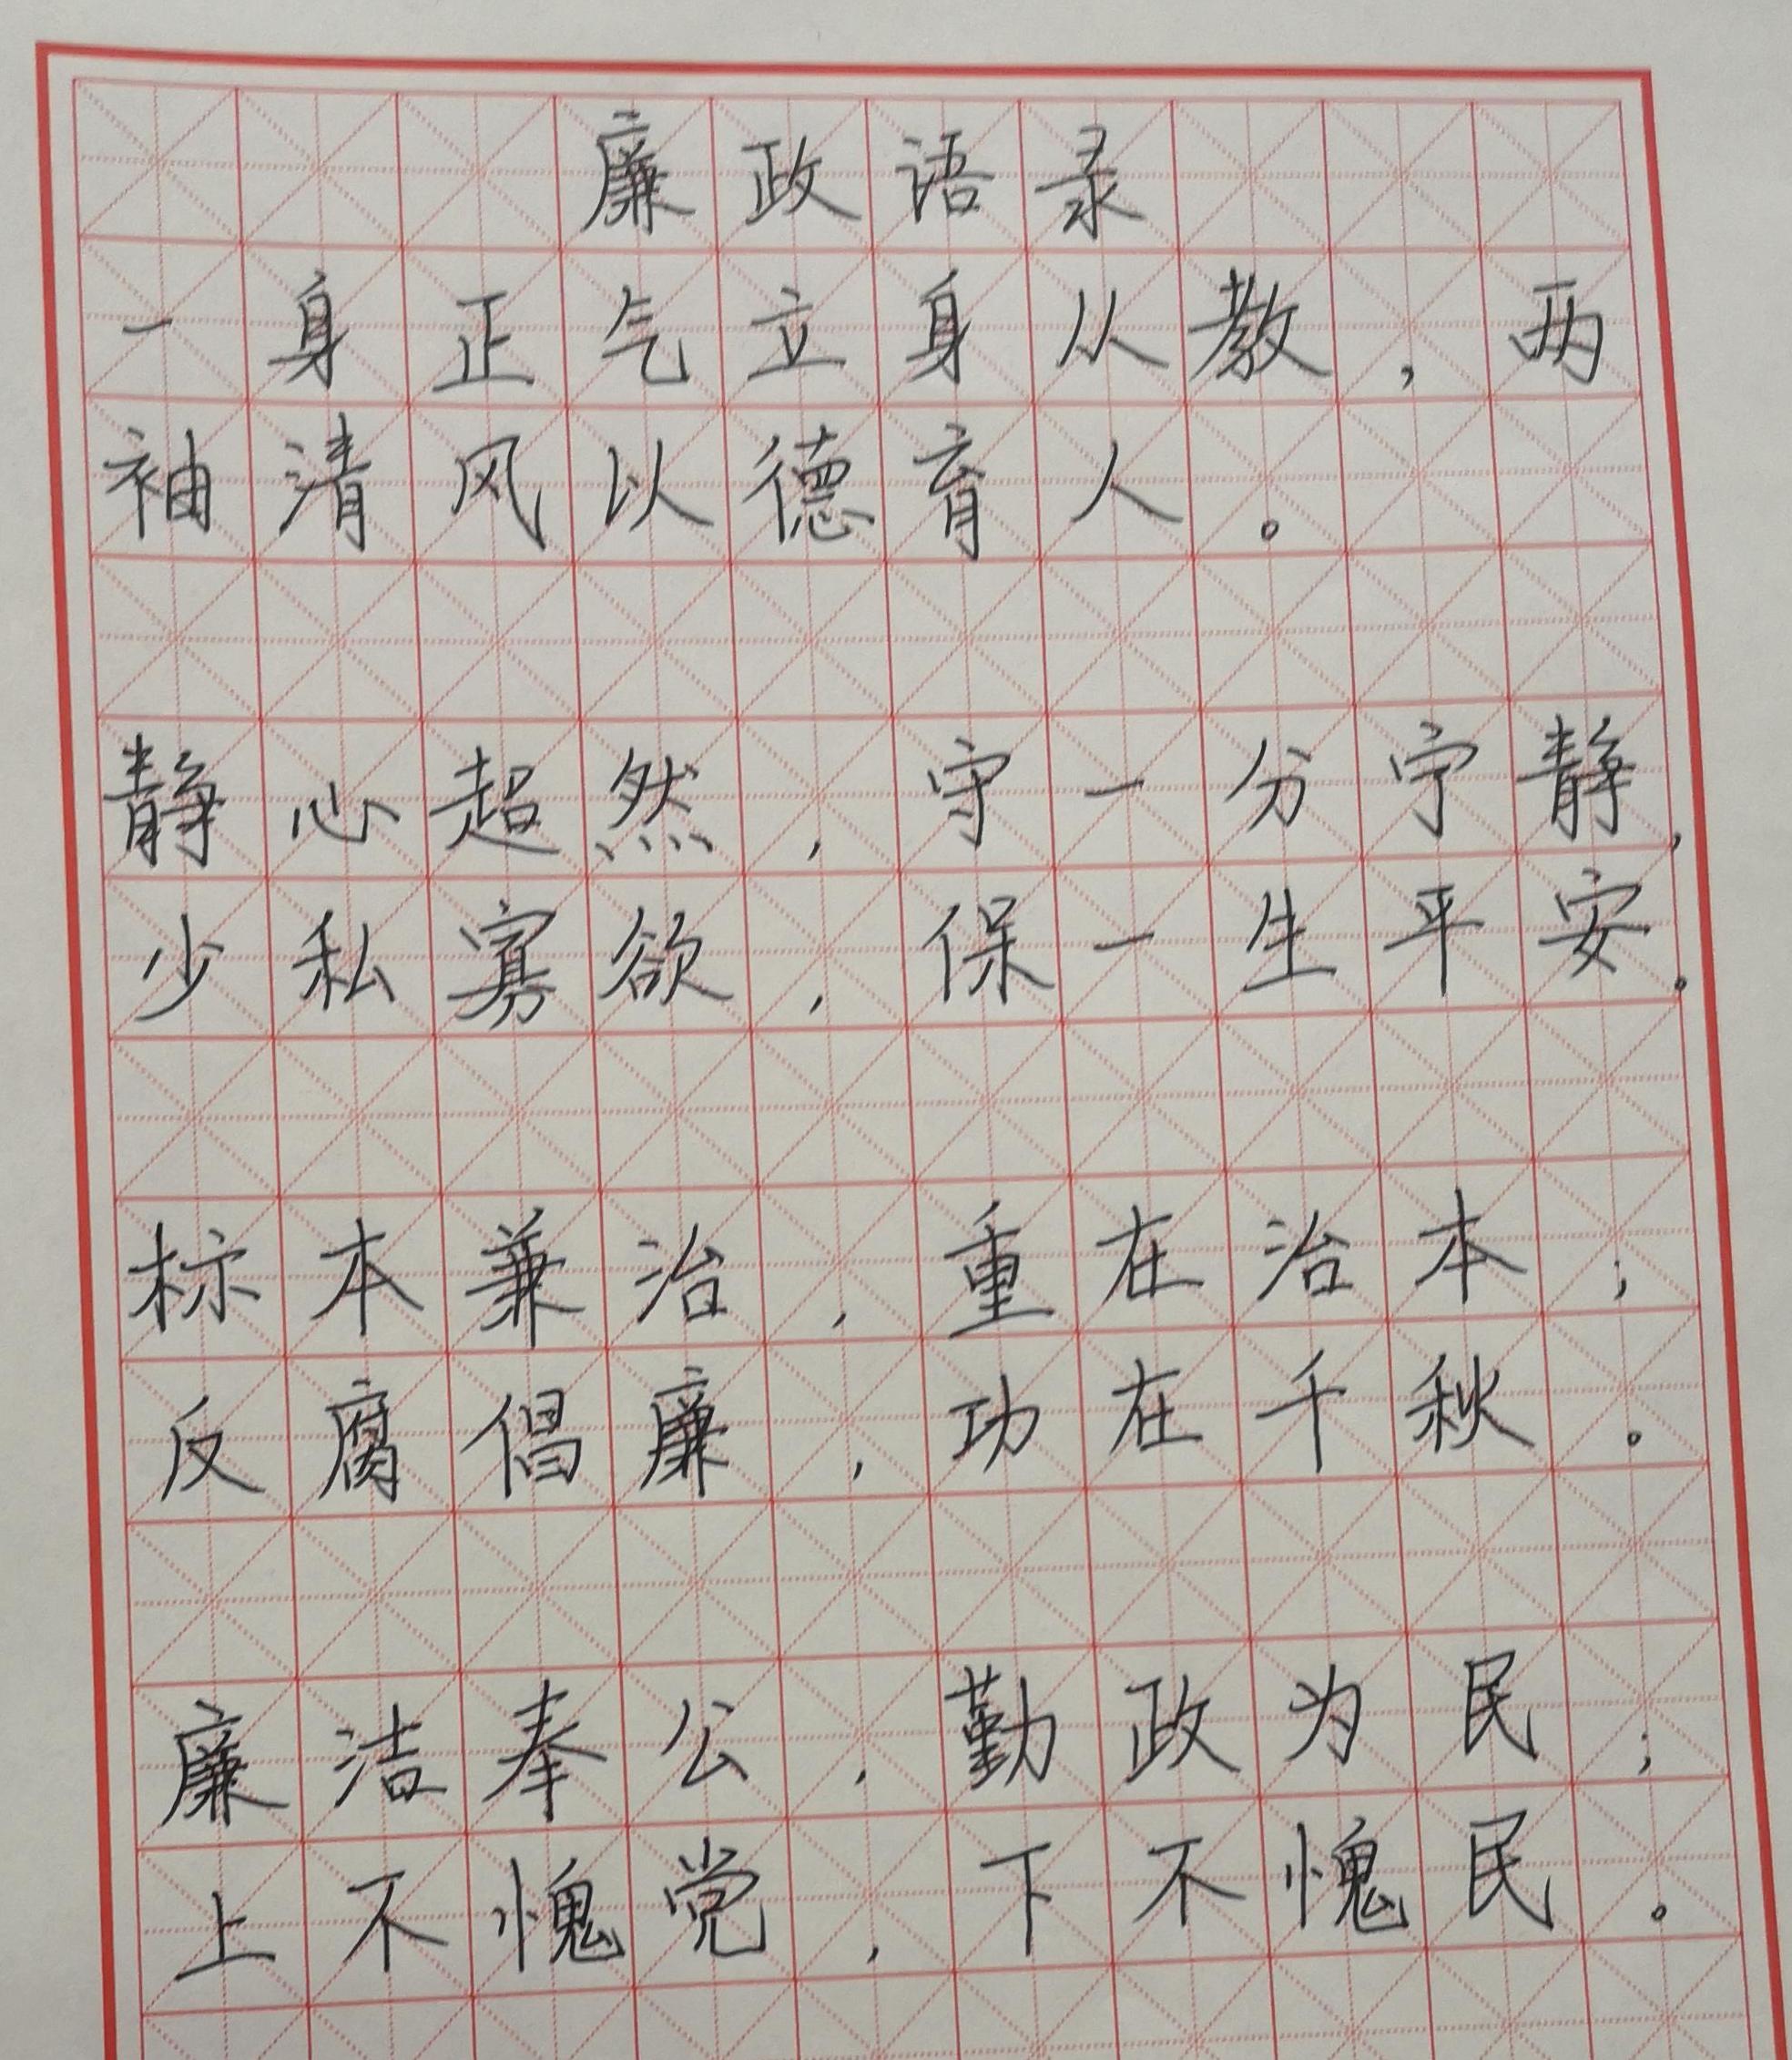 廉政语录
一身正气立身从教，两
袖清风以德育人。
静心超然，守一分宁静，
少私寡欲，保一生平安。
标本兼治，重在治本；
反腐倡廉，功在千秋。
廉洁奉公，勤政为民；
上不愧党，下不愧民。